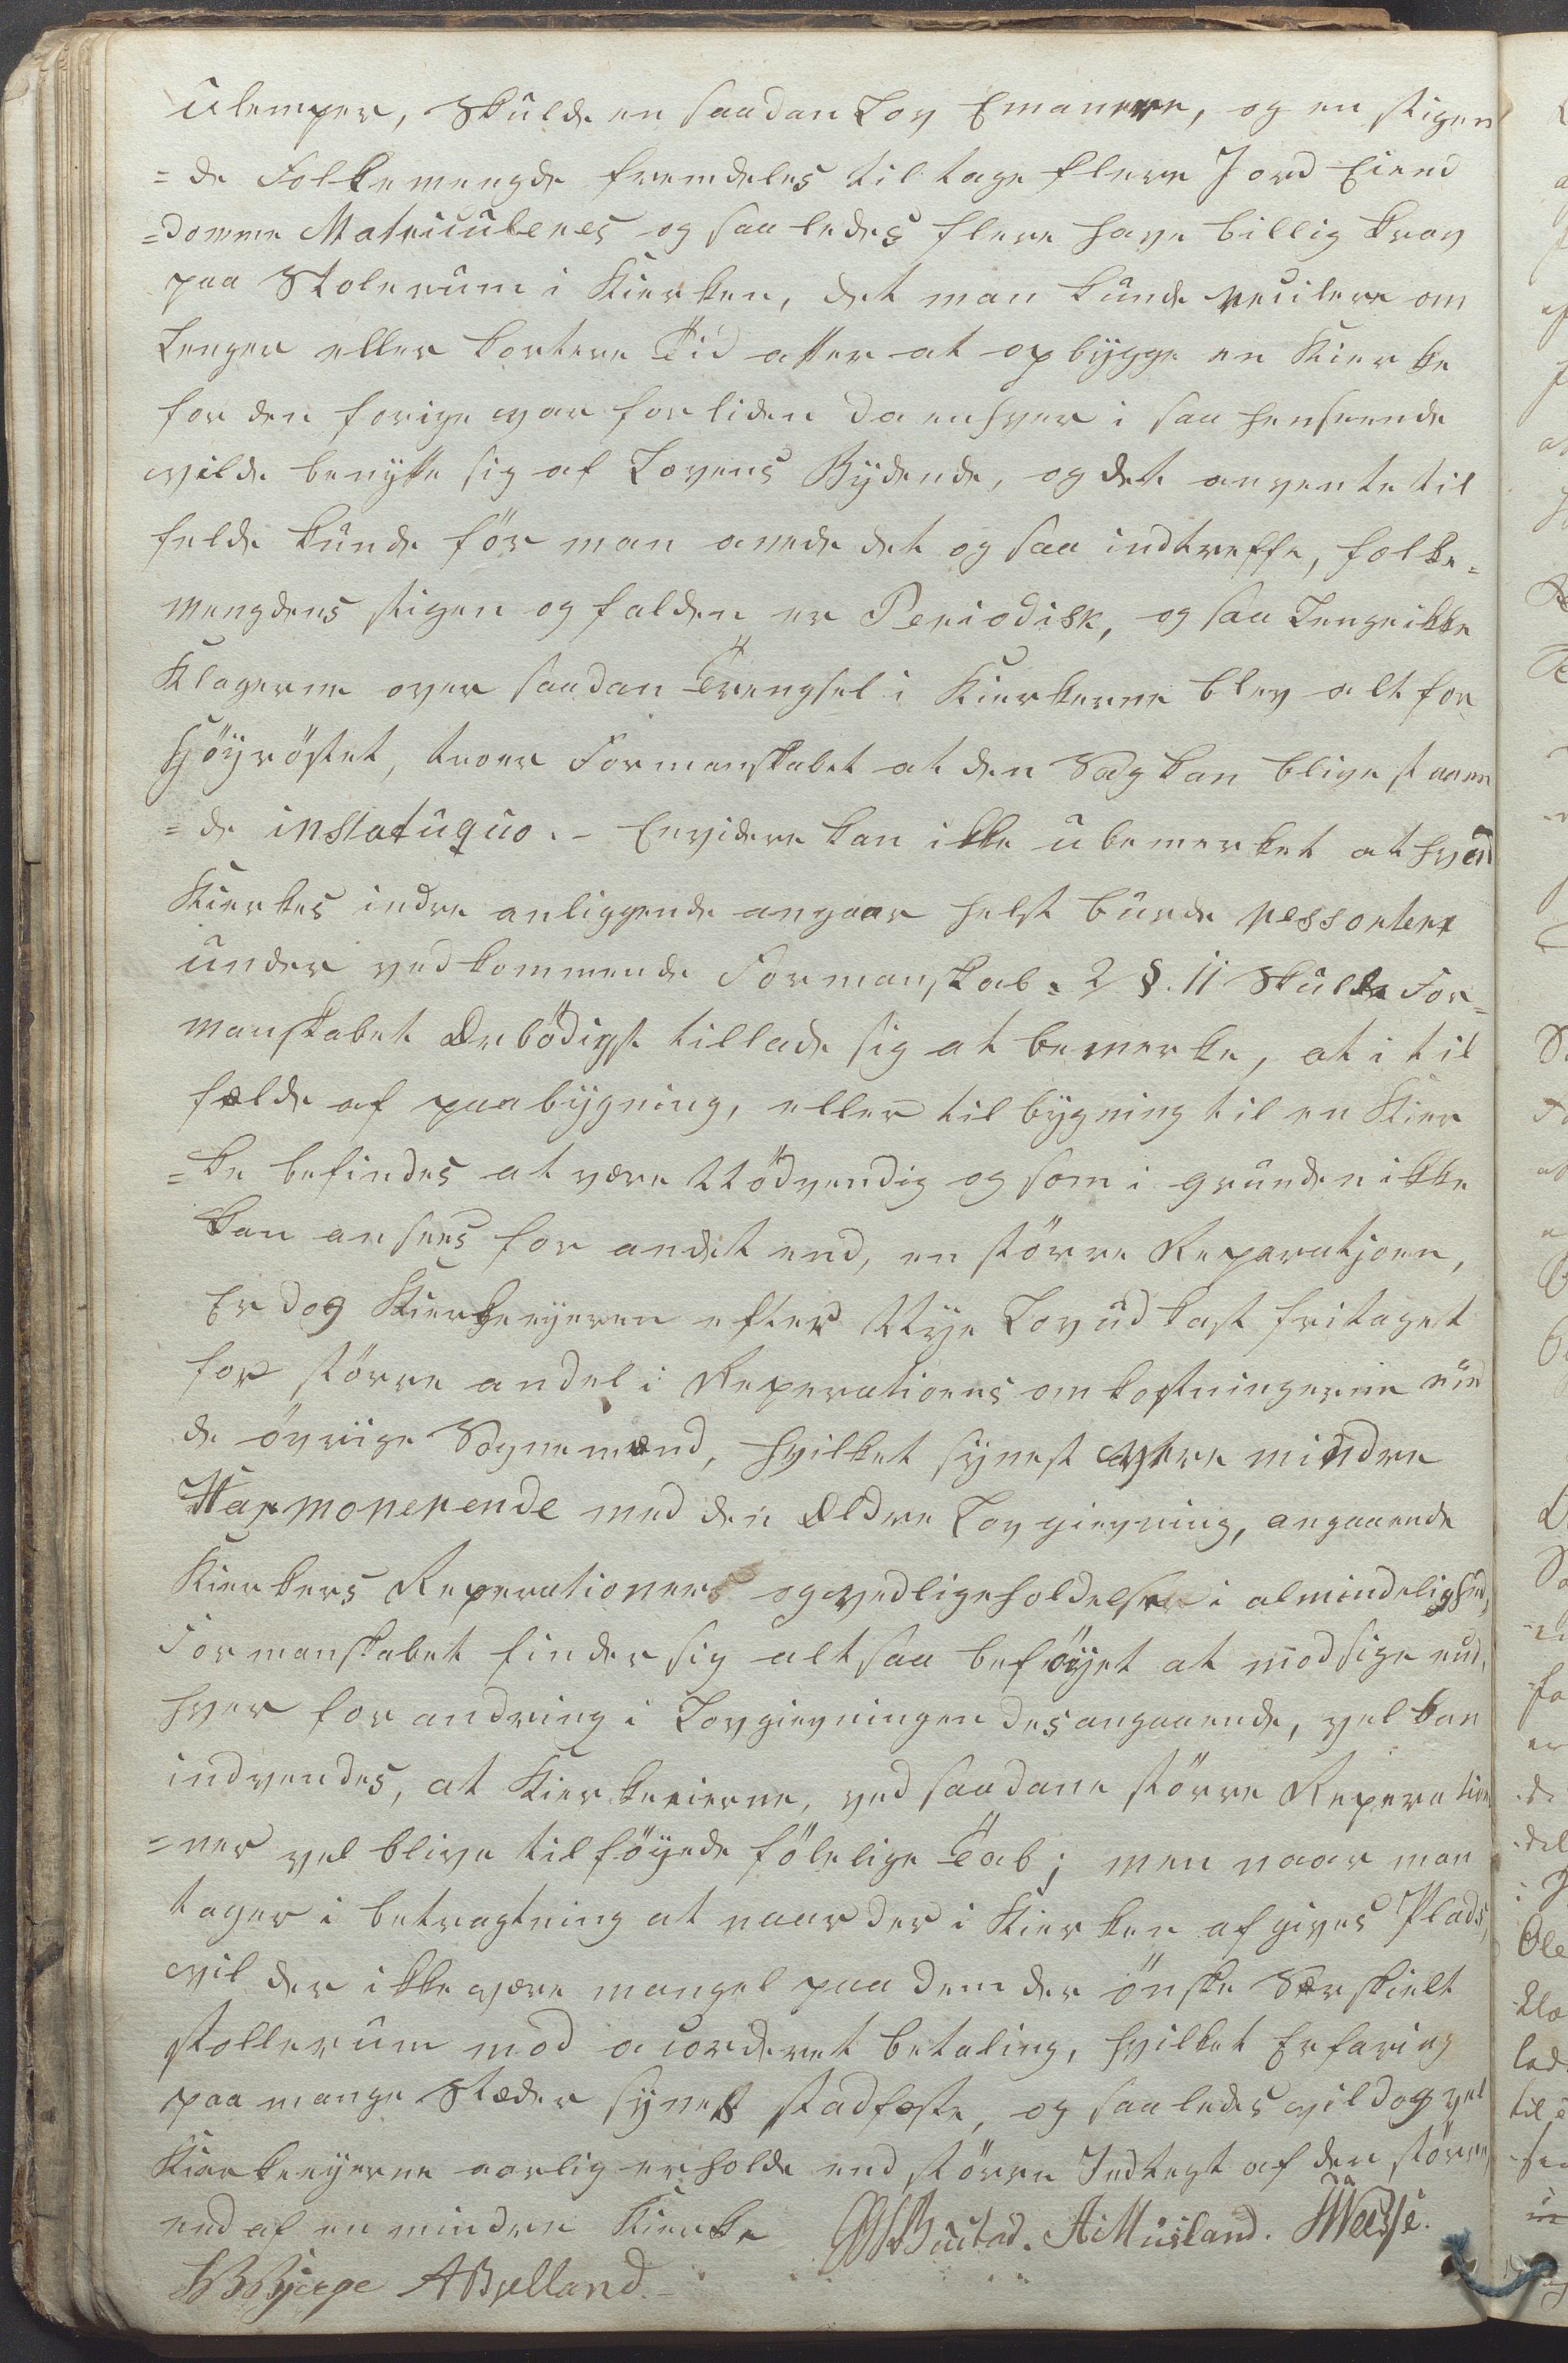 ulemper, Skulde en saadan Lov Emanere, og en stigen
=de Folkemengde fremdeles tiltage flere Jord Eiend
=domme Matriculeres og saaledes flere have billig krav
paa Stolerum i Kierken, det man kunde reculere om
Lenger eller kortere Tid atter at opbygge en Kierke
for den forige var for liden da enhver i saa henseende
vilde benytte sig af Lovens Bydende, og det anvente til
felde kunde før man anede det og saa indtreffe, folke=
mengdens stigen og falden er Periodisk, og saa Lenge ikke
Klagerne over saadan Trengsel i Kierkerne blev alt for
høyrøstet, troer Formanskabet at den Sag kan blive staaen
=de instatuquo. - Envidere kan ikke ubemerket at hvad
Kierkes indre anliggende angaar helst burde ressortere
under vedkommende Formanskab. 2 §. 11 Skulde For=
manskabet Ærbødigst tillade sig at bemerke, at i til
fælde af paabygning, eller tilbygning til en Kier
=ke befindes at være Nødvendig og som i grunden ikke
kan ansees for andet end, en større Reparatjoen,
Er dog Kierkeeyeren efter Nye Lovudkast fritaget
for større andel i Reperationens omkostningerne end
de øvrige Sognemænd, hvilket synest være mindre
Harmonerende med den Ældre Lovgievning, angaaende
Kierkers Reperationer og vedligeholdelse i almindelighed,
Formanskabet finder sig altsaa beføyet at modsige end,
hver forandring i Lovgievningen desangaaende, vel kan
indvendes, at Kierkeeierne, ved saadane større Reperatio
=ner vel blive tilføyede følelige Tab; men naar man
tager i betragtning at naar der i Kierken afgives Plads,
vil der ikke være mangel paa dem der ønske Særskielt
stollerum mod acorderet betaling, hvilket Erfaring
paa mange Stæder synes stadfæste, og saaledes vil dog vel
Kierkeeyerne aarlig erholde end større Indtegt af den større,
end af en mindre Kierke Bustad. A Musland. Wasse.
Bjerge ABjelland